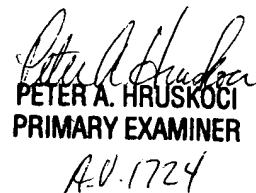 Peter A Hruskoci
PETER A. HRUSKOCI
PRIMARY EXAMINER
A.U. 1724